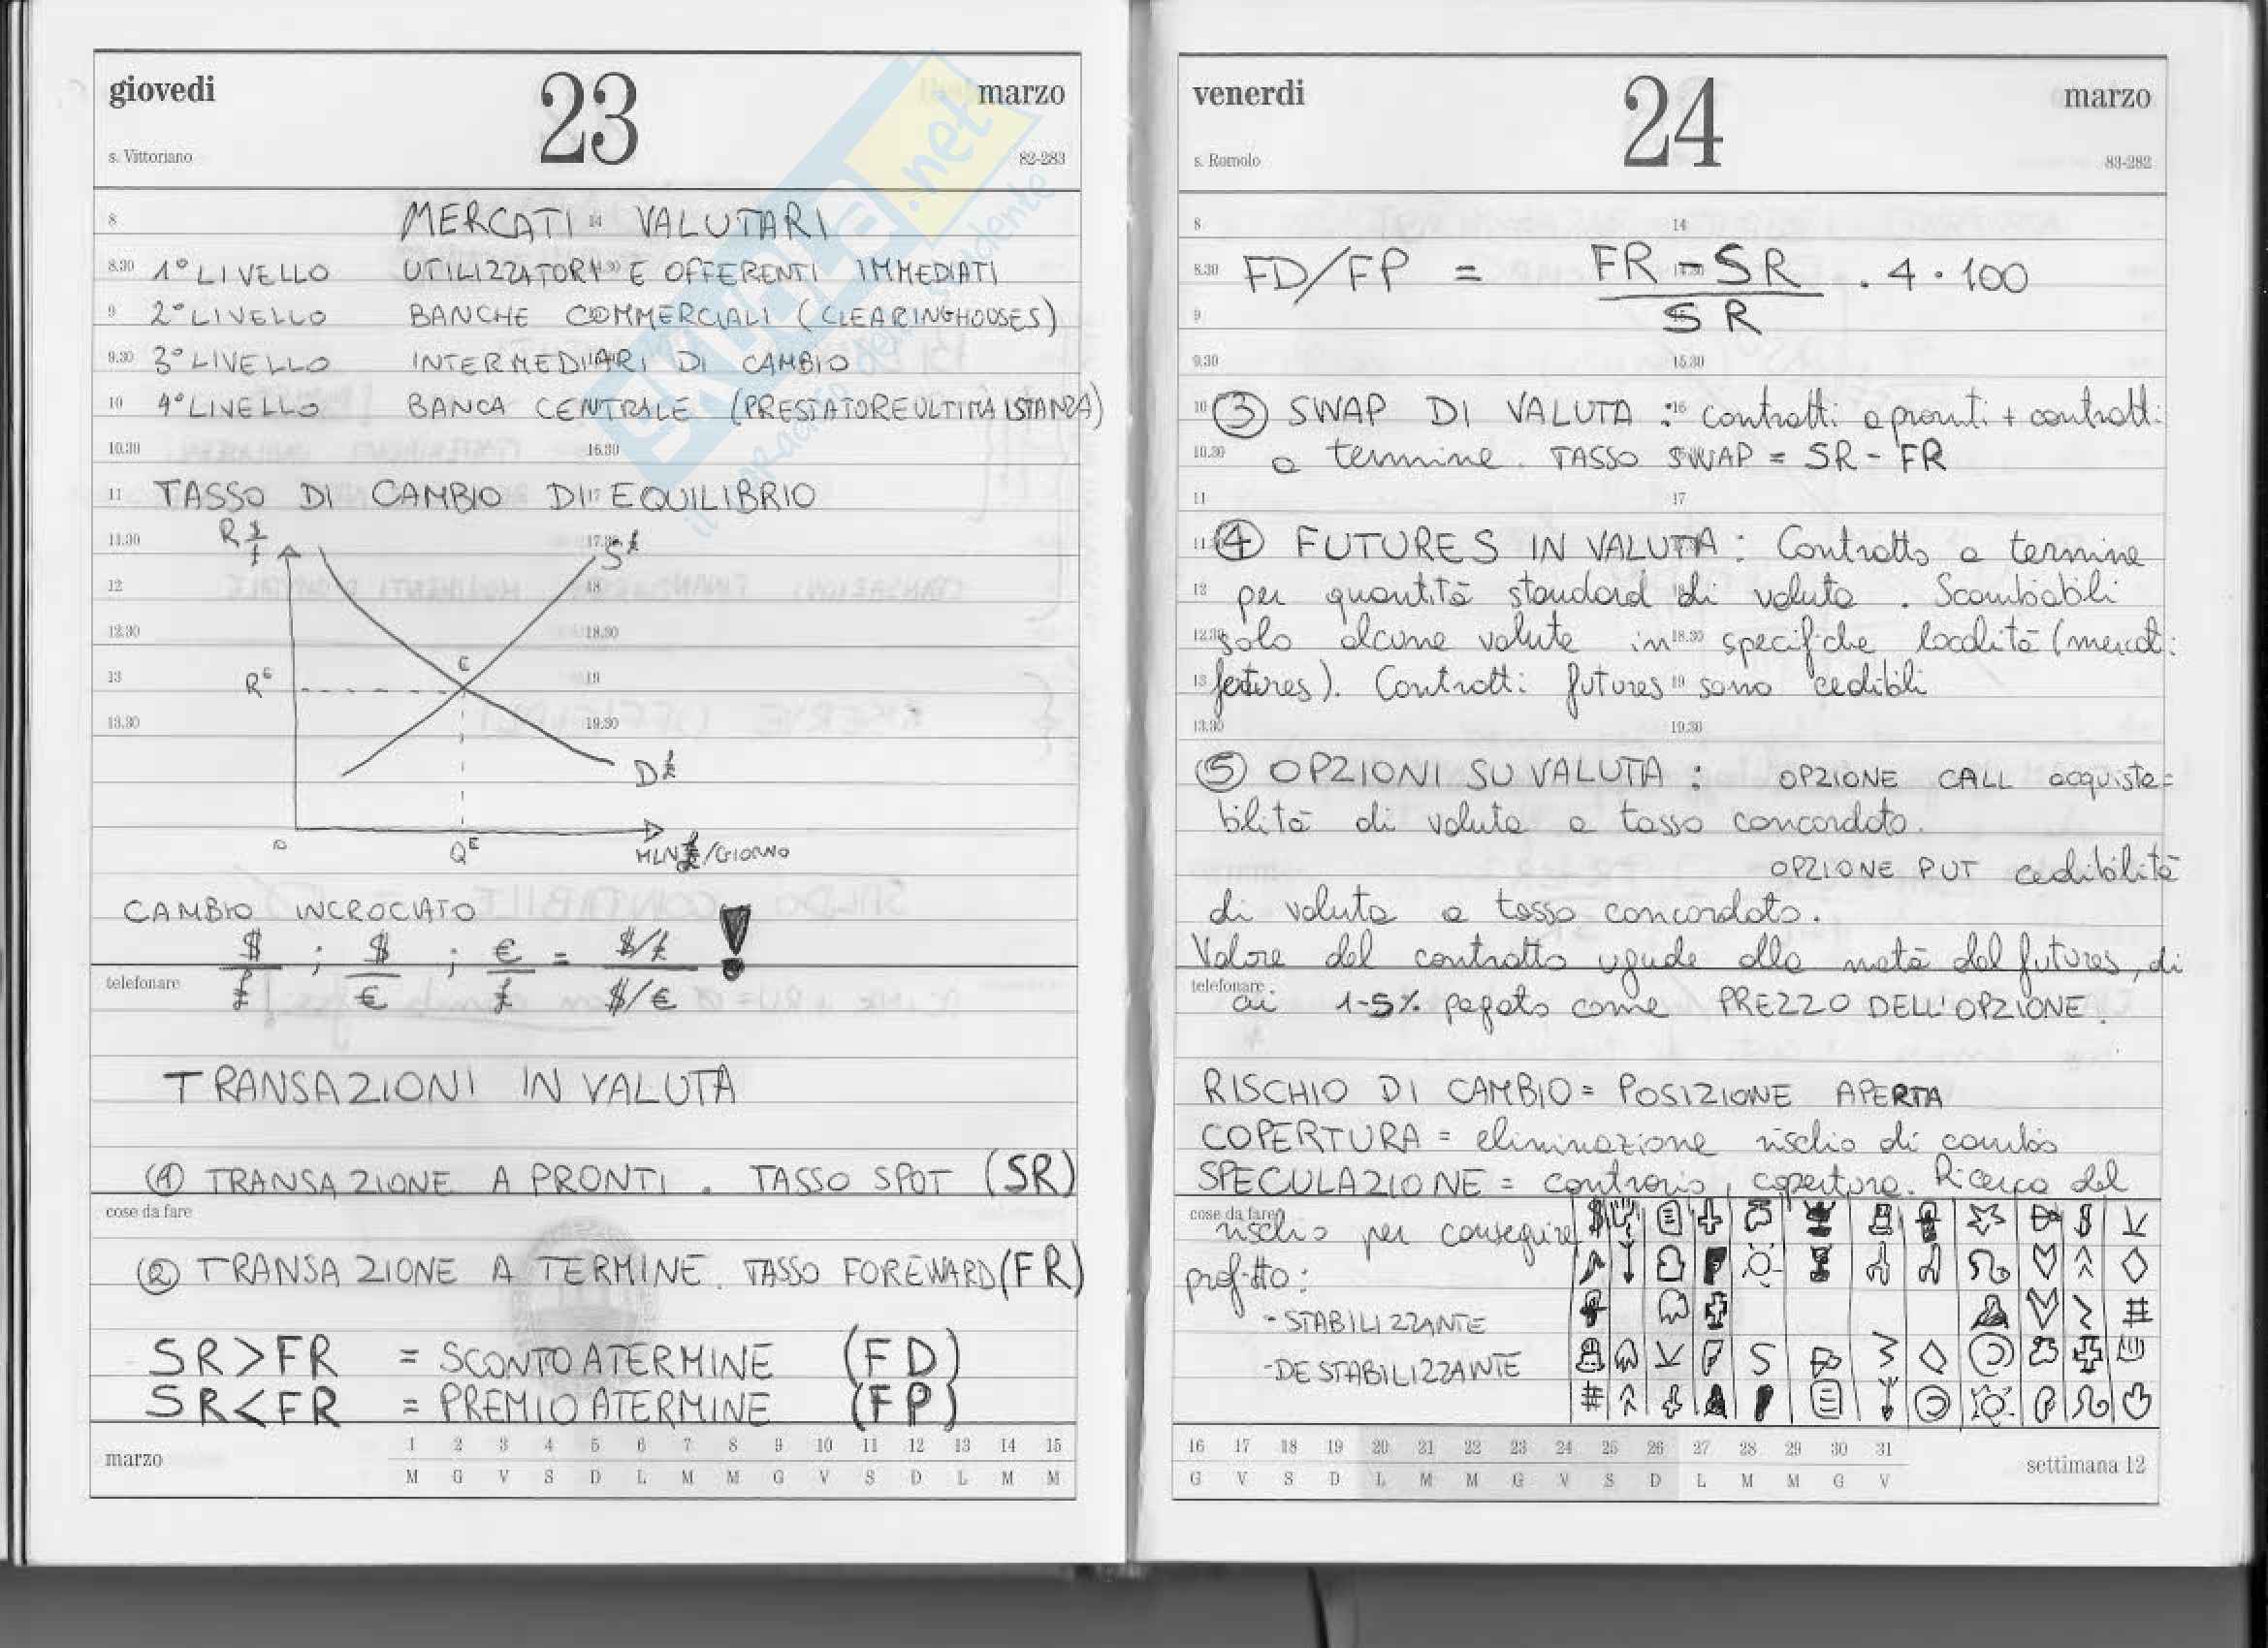 giovedì 23 marzo
s. Vittoriano 82-283
8 14 MERCATI VALUTARI
8.30 1° LIVELLO UTILIZZATORI E OFFERENTI IMMEDIATI
9 2° LIVELLO BANCHE COMMERCIALI (CLEARINGHOUSES)
9.30 3° LIVELLO INTERMEDIARI DI CAMBIO
10 4° LIVELLO BANCA CENTRALE (PRESTATORE ULTIMA ISTANZA)
10.30 16.30
11 17 TASSO DI CAMBIO DI EQUILIBRIO
R $/£
11.30 S£
12 18
12.30 18.30
E
13 Rᴱ 19
13.30 19.30
D£
0 Qᴱ MLN £/GIORNO
CAMBIO INCROCIATO
$/£ ; $/€ ; €/£ = $/£ / $/€ !
telefonare
TRANSAZIONI IN VALUTA
① TRANSAZIONE A PRONTI. TASSO SPOT (SR)
cose da fare
② TRANSAZIONE A TERMINE. TASSO FOREWARD (FR)
SR>FR = SCONTO A TERMINE (FD)
SR<FR = PREMIO A TERMINE (FP)
marzo 1 2 3 4 5 6 7 8 9 10 11 12 13 14 15
M G V S D L M M G V S D L M M
SKUOLA.net
venerdì 24 marzo
s. Romolo 83-282
8 14
8.30 FD/FP = FR - SR / SR . 4 . 100
9
9.30 15.30
10 16 ③ SWAP DI VALUTA: contratti a pronti + contratti
10.30 a termine. TASSO SWAP = SR - FR
11 17
④ FUTURES IN VALUTA: Contratto a termine
12 per quantità standard di valuta. Scambiabili
12.30 18.30 solo alcune valute in specifiche località (mercati
13 19 futures). Contratti futures sono cedibili
13.30 19.30
⑤ OPZIONI SU VALUTA: OPZIONE CALL acquista=
bilità di valuta a tasso concordato.
OPZIONE PUT cedibilità
di valuta a tasso concordato.
Valore del contratto uguale alla metà del futures, di
telefonare
cui 1-5% pagato come PREZZO DELL'OPZIONE.
RISCHIO DI CAMBIO = POSIZIONE APERTA
COPERTURA = eliminazione rischio di cambio
SPECULAZIONE = contrario, copertura. Ricerca del
cose da fare
rischio per conseguire
profitto:
- STABILIZZANTE
- DESTABILIZZANTE
16 17 18 19 20 21 22 23 24 25 26 27 28 29 30 31 settimana 12
G V S D L M M G V S D L M M G V